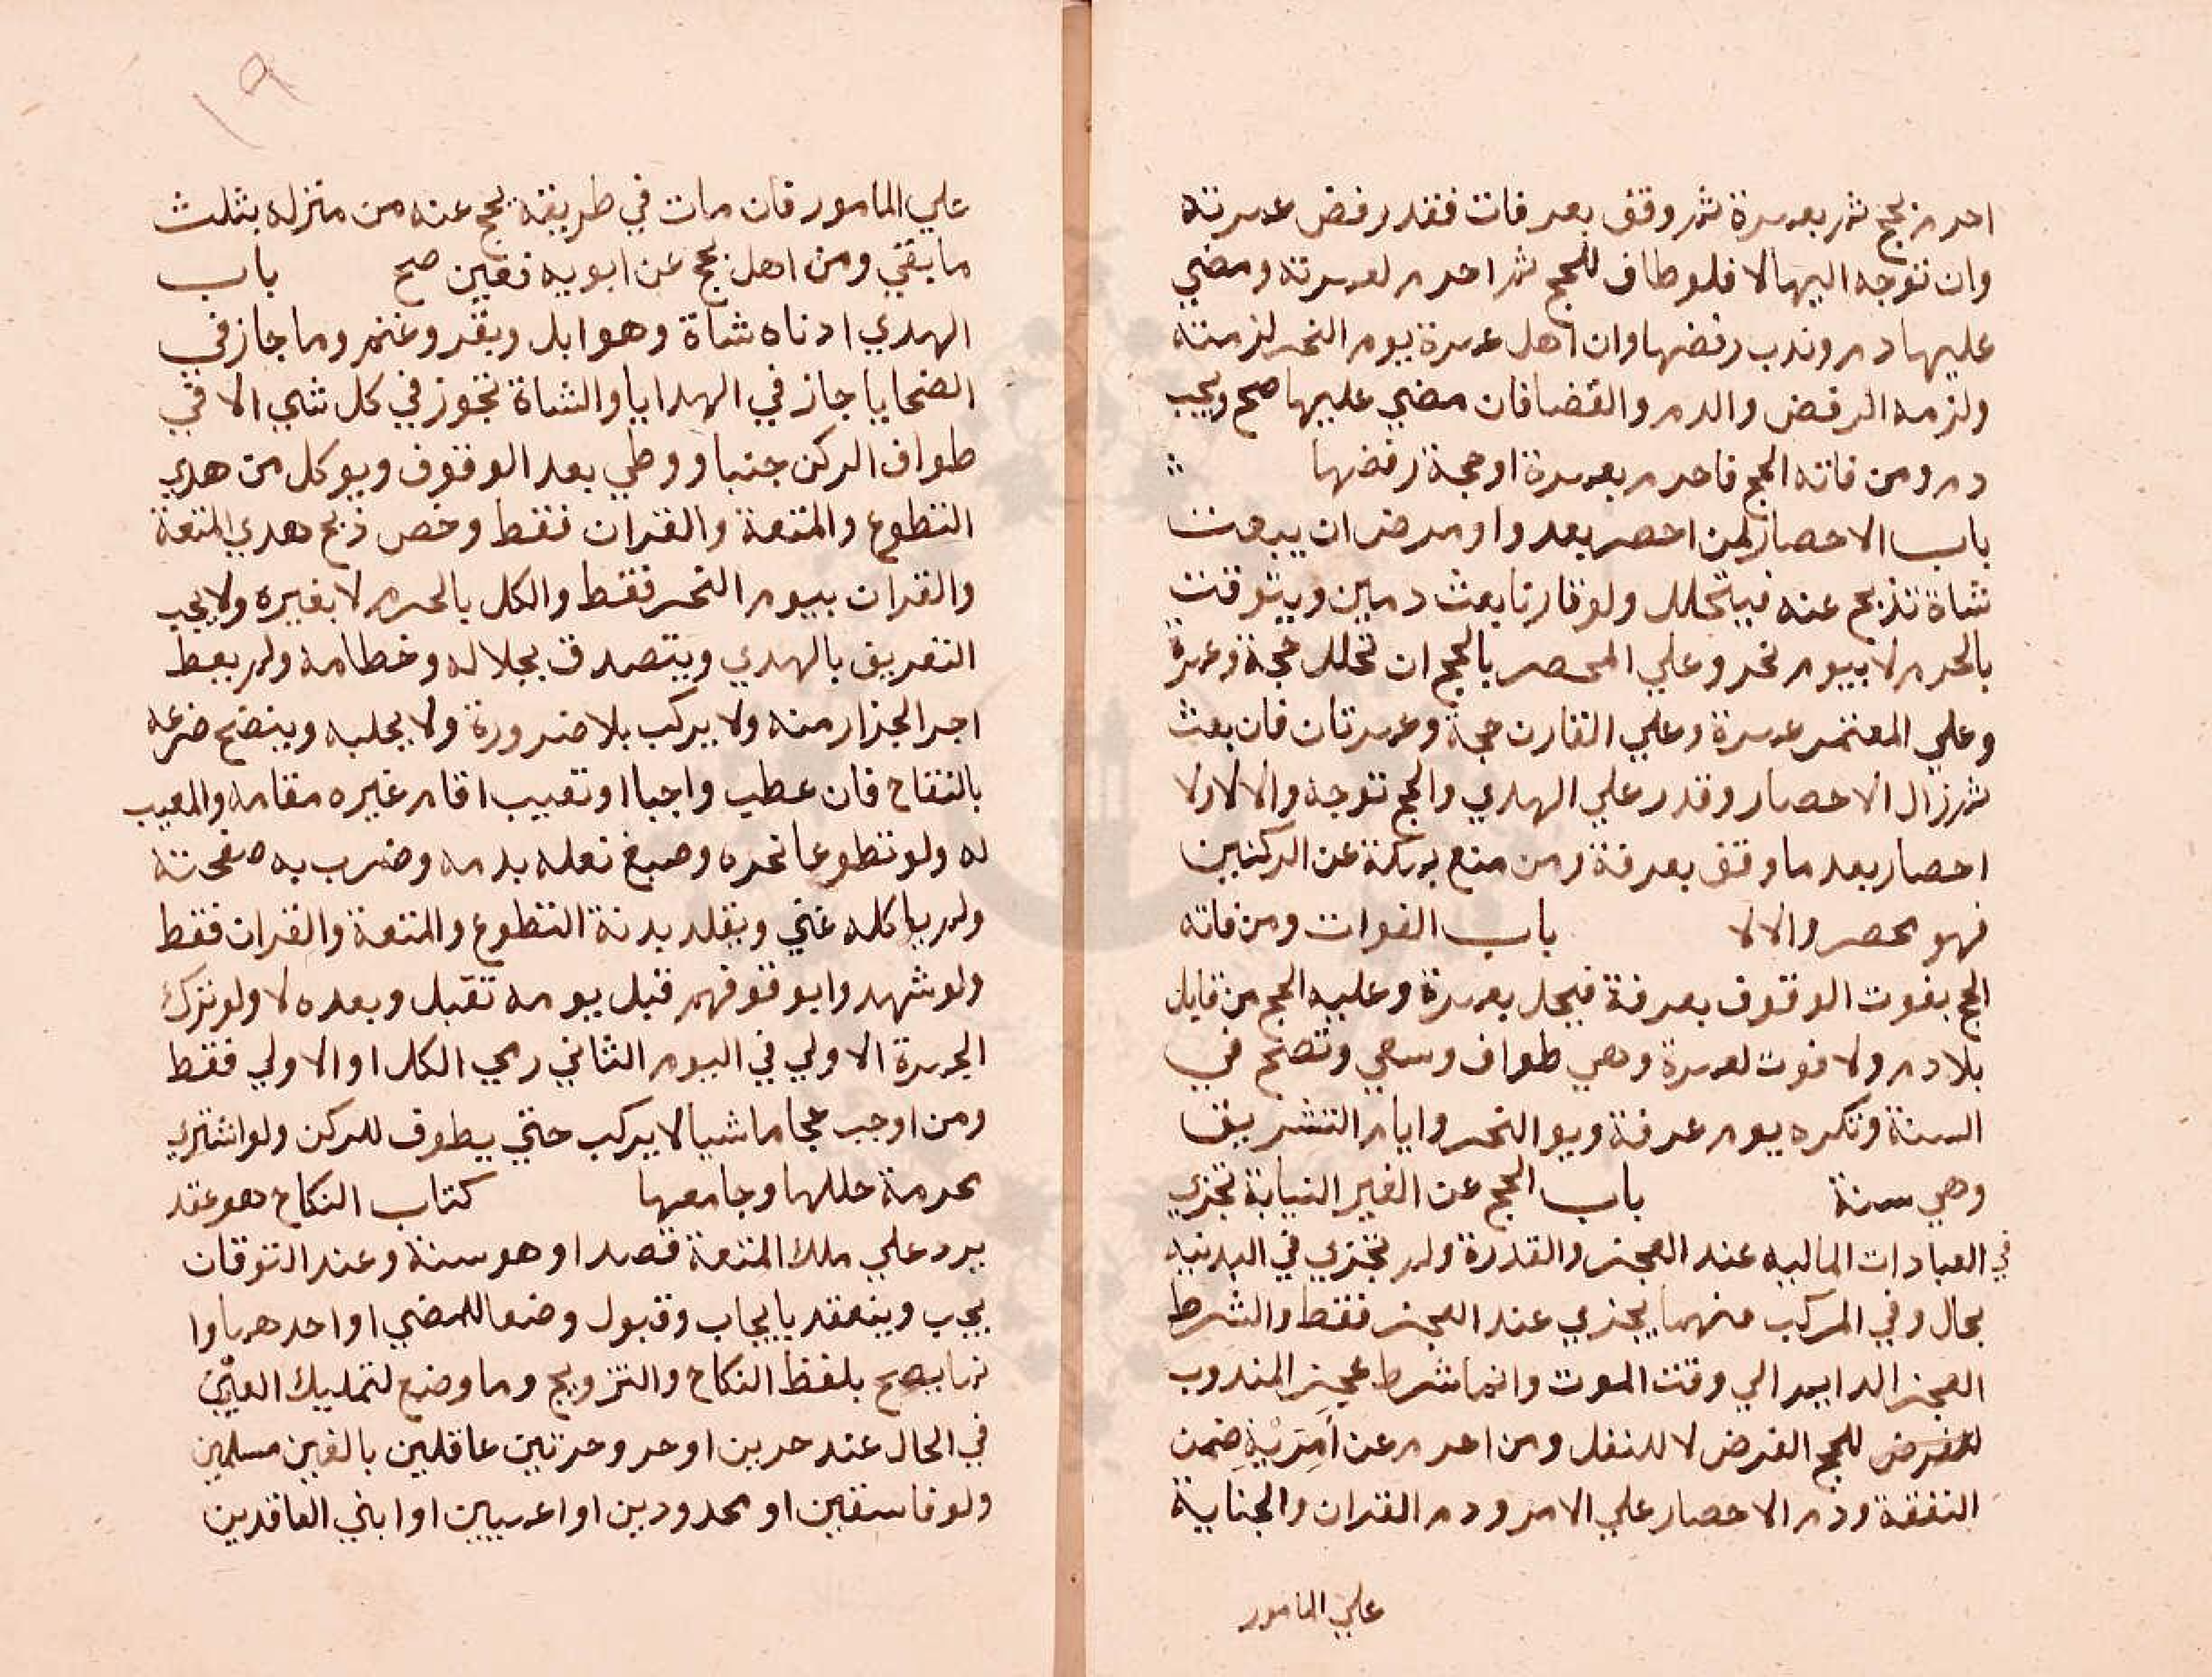 احرم بحج ثم بعمرة ثم وقف بعرفات فقد رفض عمرته
وان توجه اليها لا فلو طاف للحج ثم احرم لعمرته ومضي
عليها دم وندب رفضها وان اهل عمرة يوم النحر لزمته
ولزمه الرفض والدم والقضا فان مضي عليها صح ويجب
دم ومن فاته الحج فاحرم بعمرة او حجة رفضها
باب الاحصار لمن احصر بعدو او مرض ان يبعث
شاة تذبح عنه فيتحلل ولو قارنا بعث دمين ويتوقت
بالحرم لا بيوم نحر وعلي المحصر بالحج ان تحلل حجة وعمرة
وعلي المعتمر عمرة وعلي القارن حجة وعمرتان فان بعث
ثم زال الاحصار وقدر علي الهدي والحج توجه والا لا ولا
احصار بعد ما وقف بعرفة ومن منع بمكة عن الركنين
فهو محصر والا لا باب الفوات ومن فاته
الحج بفوت الوقوف بعرفة فيحل بعمرة وعليه الحج من قابل
بلا دم ولا فوت لعمرة وهي طواف وسعي وتصح في
السنة وتكره يوم عرفة ويو النحر وايام التشريق
وهي سنة باب الحج عن الغير النيابة تجزي
في العبادات الماليه عند العجز والقدرة ولم تجزي في البدنيه
بحال وفي المركب منهما يجزي عند العجز فقط والشرط
العجز الدايم الي وقت الموت وانما شرط عجز المندوب
للحج الفرض لا للنفل ومن احرم عن امريه ضمن
النفقة ودم الاحصار علي الامر ودم القران والجناية
علي المامور
١٩
علي المامور فان مات في طريقه يحج عنه من منزله بثلث
ما بقي ومن اهل بحج عن ابويه فعين صح باب
الهدي ادناه شاة وهو ابل وبقر وغنم وما جاز في
الضحايا جاز في الهدايا والشاة تجوز في كل شي الا في
طواف الركن جنبا ووطي بعد الوقوف ويوكل من هدي
التطوع والمتعة والقران فقط وخص ذبح هدي المتعة
والقران بيوم النحر فقط والكل بالحرم لا بغيره ولا يجب
التعريف بالهدي ويتصدق بجلاله وخطامه ولم يعط
اجر الجزار منه ولا يركب بلا ضرورة ولا يحلبه وينضح ضرعه
بالنقاخ فان عطب واجبا او تعيب اقام غيره مقامه والمعيب
له ولو تطوعا نحره وصبغ نعله بدمه وضرب به صفحته
ولم ياكله غني ويقلد بدنة التطوع والمتعة والقران فقط
ولو شهدوا بوقوفهم قبل يومه تقبل وبعده لا ولو ترك
الجمرة الاولي في اليوم الثاني رمي الكل او الاولي فقط
ومن اوجب حجا ماشيا لا يركب حتي يطوف للركن ولو اشتري
محرمة حللها وجامعها كتاب النكاح هو عقد
يرد علي ملك المتعة قصدا وهو سنة وعند التوقان
يجب وينعقد بايجاب وقبول وضعا للمضي او احدهما وا
نما يصح بلفظ النكاح والتزويج وما وضع لتمليك العين
في الحال عند حرين او حر وحرتين عاقلين بالغين مسلمين
ولو فاسقين او محدودين او اعميين او ابني العاقدين